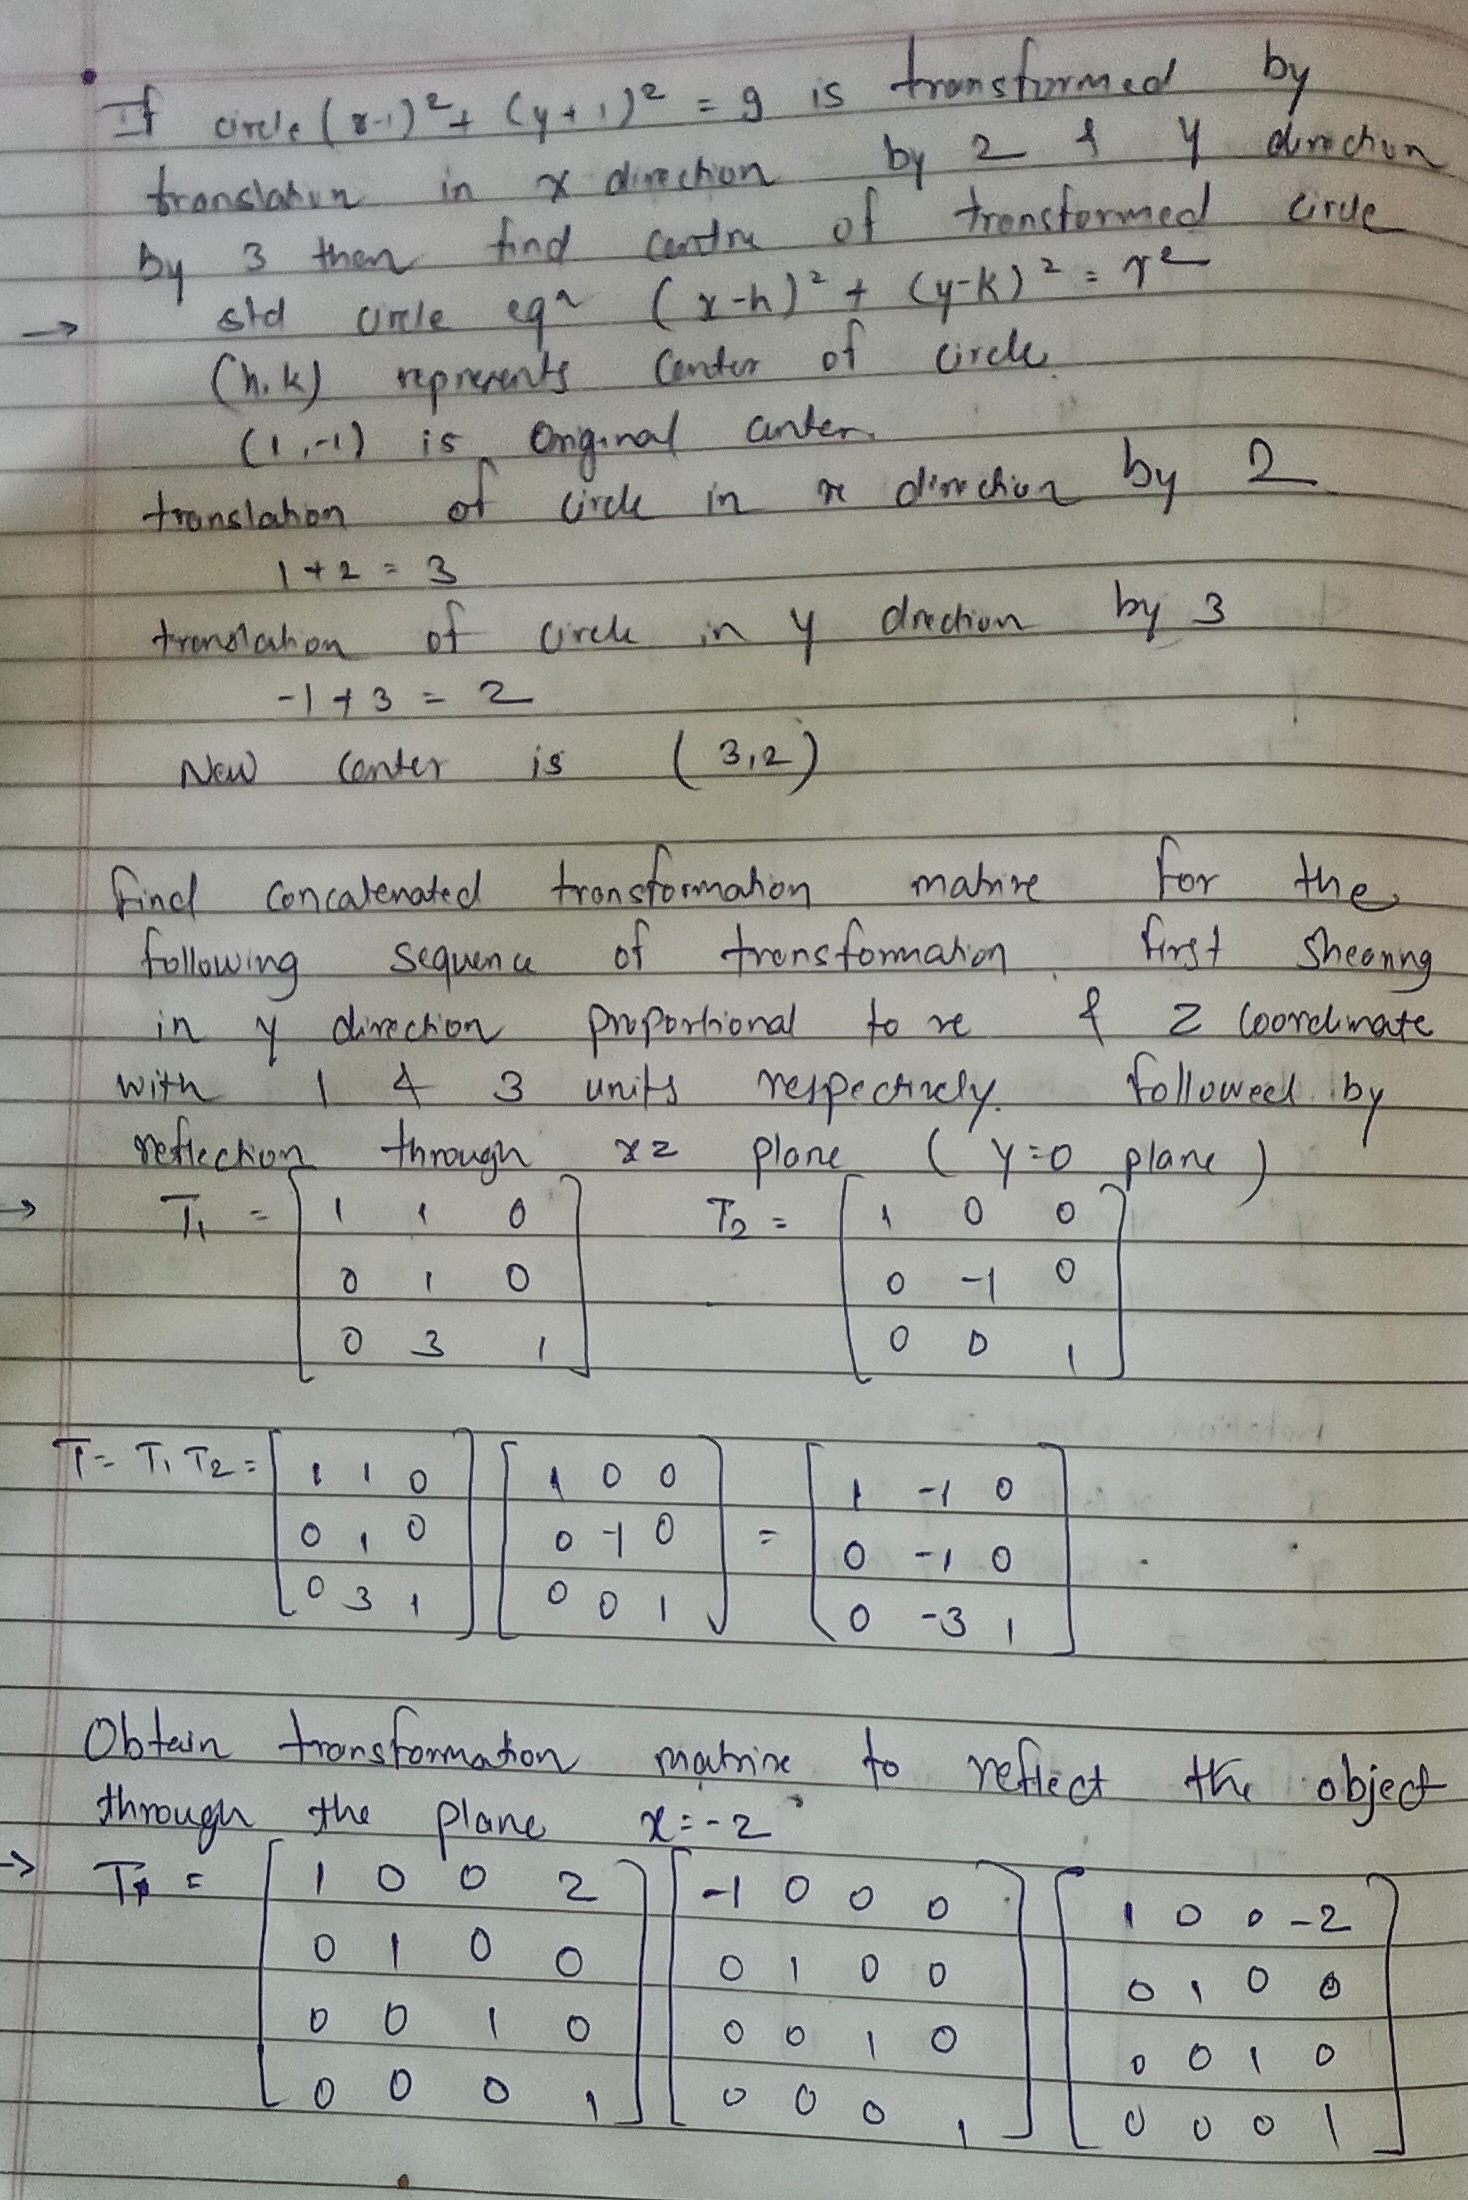 • If circle (x-1)² + (y+1)² = 9 is transformed by
translation in x direction by 2 & y direction
by 3 then find centre of transformed circle
→ std circle eqn (x-h)² + (y-k)² = r²
(h,k) represents center of circle.
(1,-1) is Original center.
translation of circle in x direction by 2
1+2 = 3
translation of circle in y direction by 3
-1+3 = 2
New center is (3,2)
find concatenated transformation matrix for the
following sequence of transformation. first shearing
in y direction proportional to x & z coordinate
with 1 & 3 units respectively. followed by
reflection through xz plane (y=0 plane)
→ T₁ = [ 1 1 0 T₂ = [ 1 0 0 ]
0 1 0 0 -1 0
0 3 1 ] 0 0 1 ]
T = T₁ T₂ = [ 1 1 0 ] [ 1 0 0 ] = [ 1 -1 0 ]
0 1 0 0 -1 0 0 -1 0
0 3 1 0 0 1 0 -3 1
Obtain transformation matrix to reflect the object
through the plane x=-2
→ T = [ 1 0 0 2 ] [ -1 0 0 0 ] [ 1 0 0 -2 ]
0 1 0 0 0 1 0 0 0 1 0 0
0 0 1 0 0 0 1 0 0 0 1 0
0 0 0 1 0 0 0 1 0 0 0 1